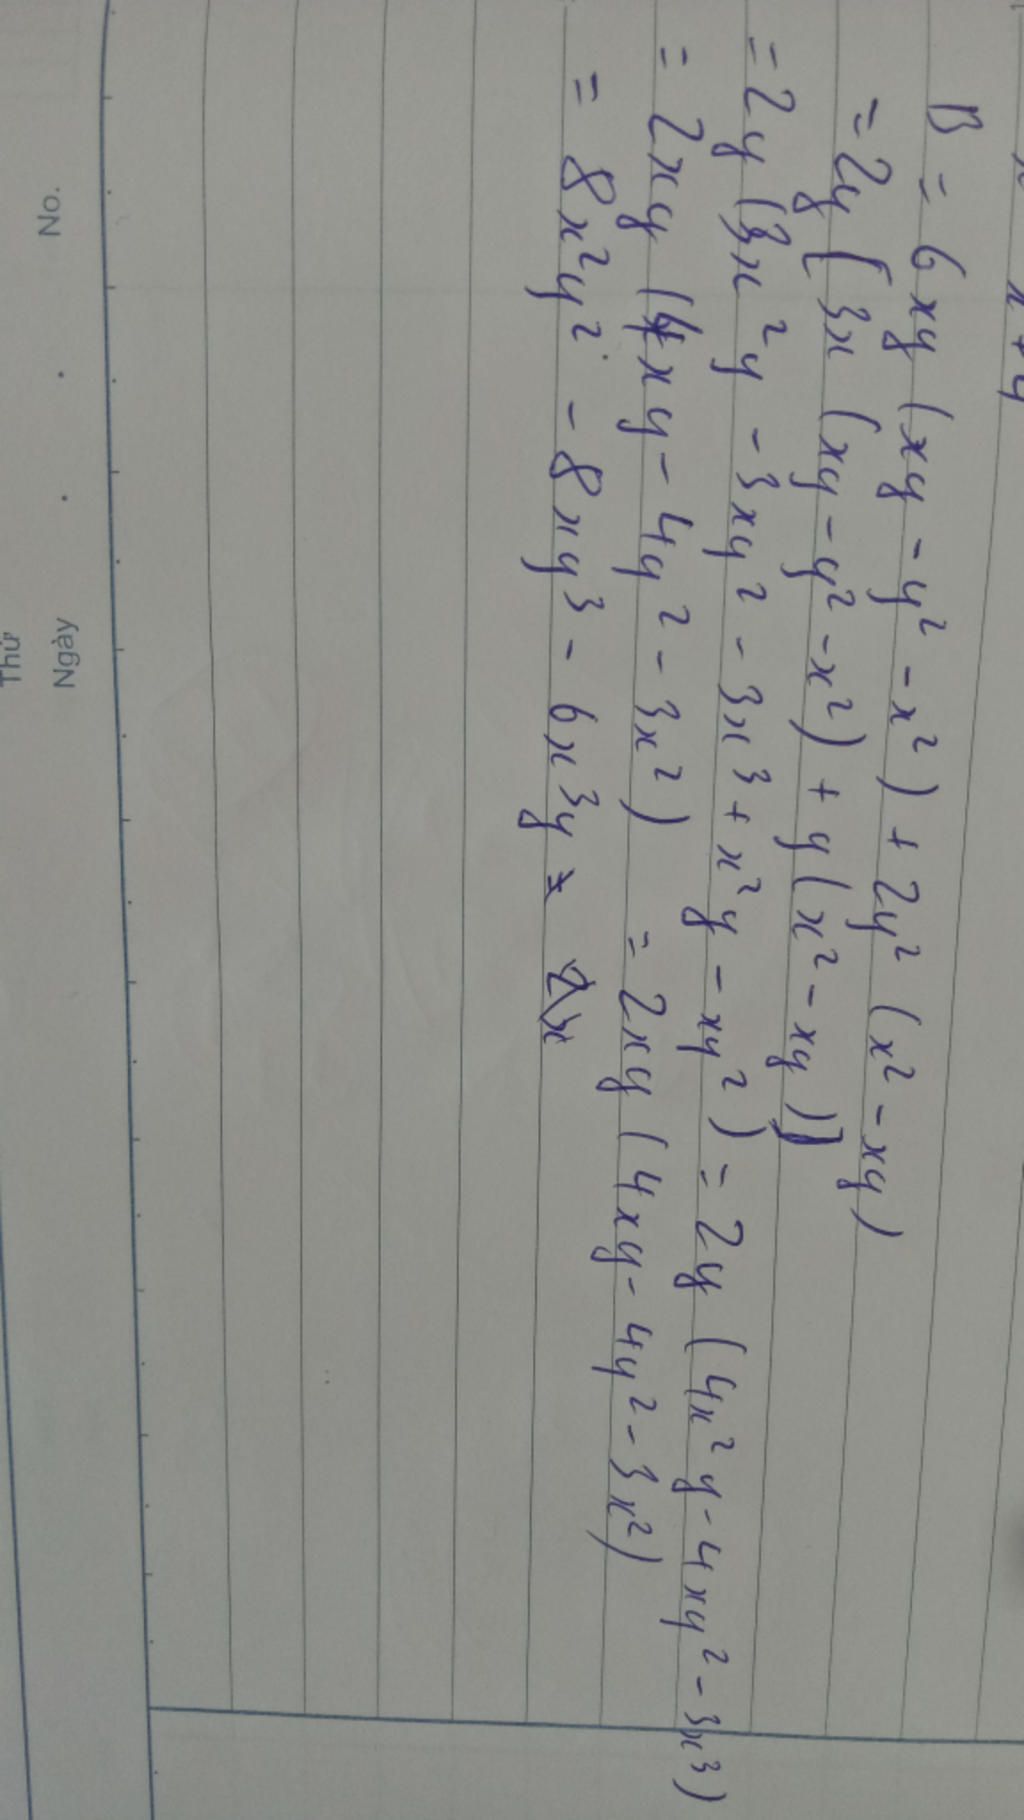 x+y
B = 6xy (xy - y² - x²) + 2y² (x² - xy)
= 2y [3x (xy - y² - x²) + y (x² - xy)]
= 2y (3x²y - 3xy² - 3x³ + x²y - xy²) = 2y (4x²y - 4xy² - 3x³)
= 2xy (4xy - 4y² - 3x²) = 2xy (4xy - 4y² - 3x²)
= 8x²y² - 8xy³ - 6x³y
No.
Thứ
Ngày